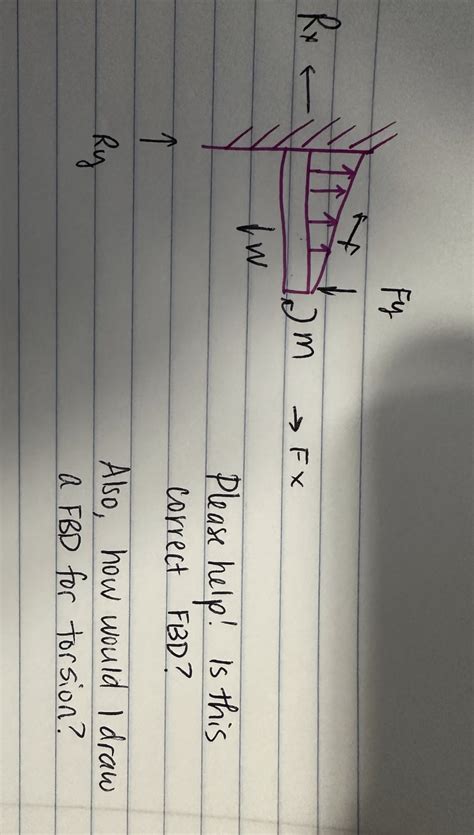 Rx
Fy
t
W
m
Fx
Ry
Please help! Is this
correct FBD?
Also, how would I draw
a FBD for torsion?